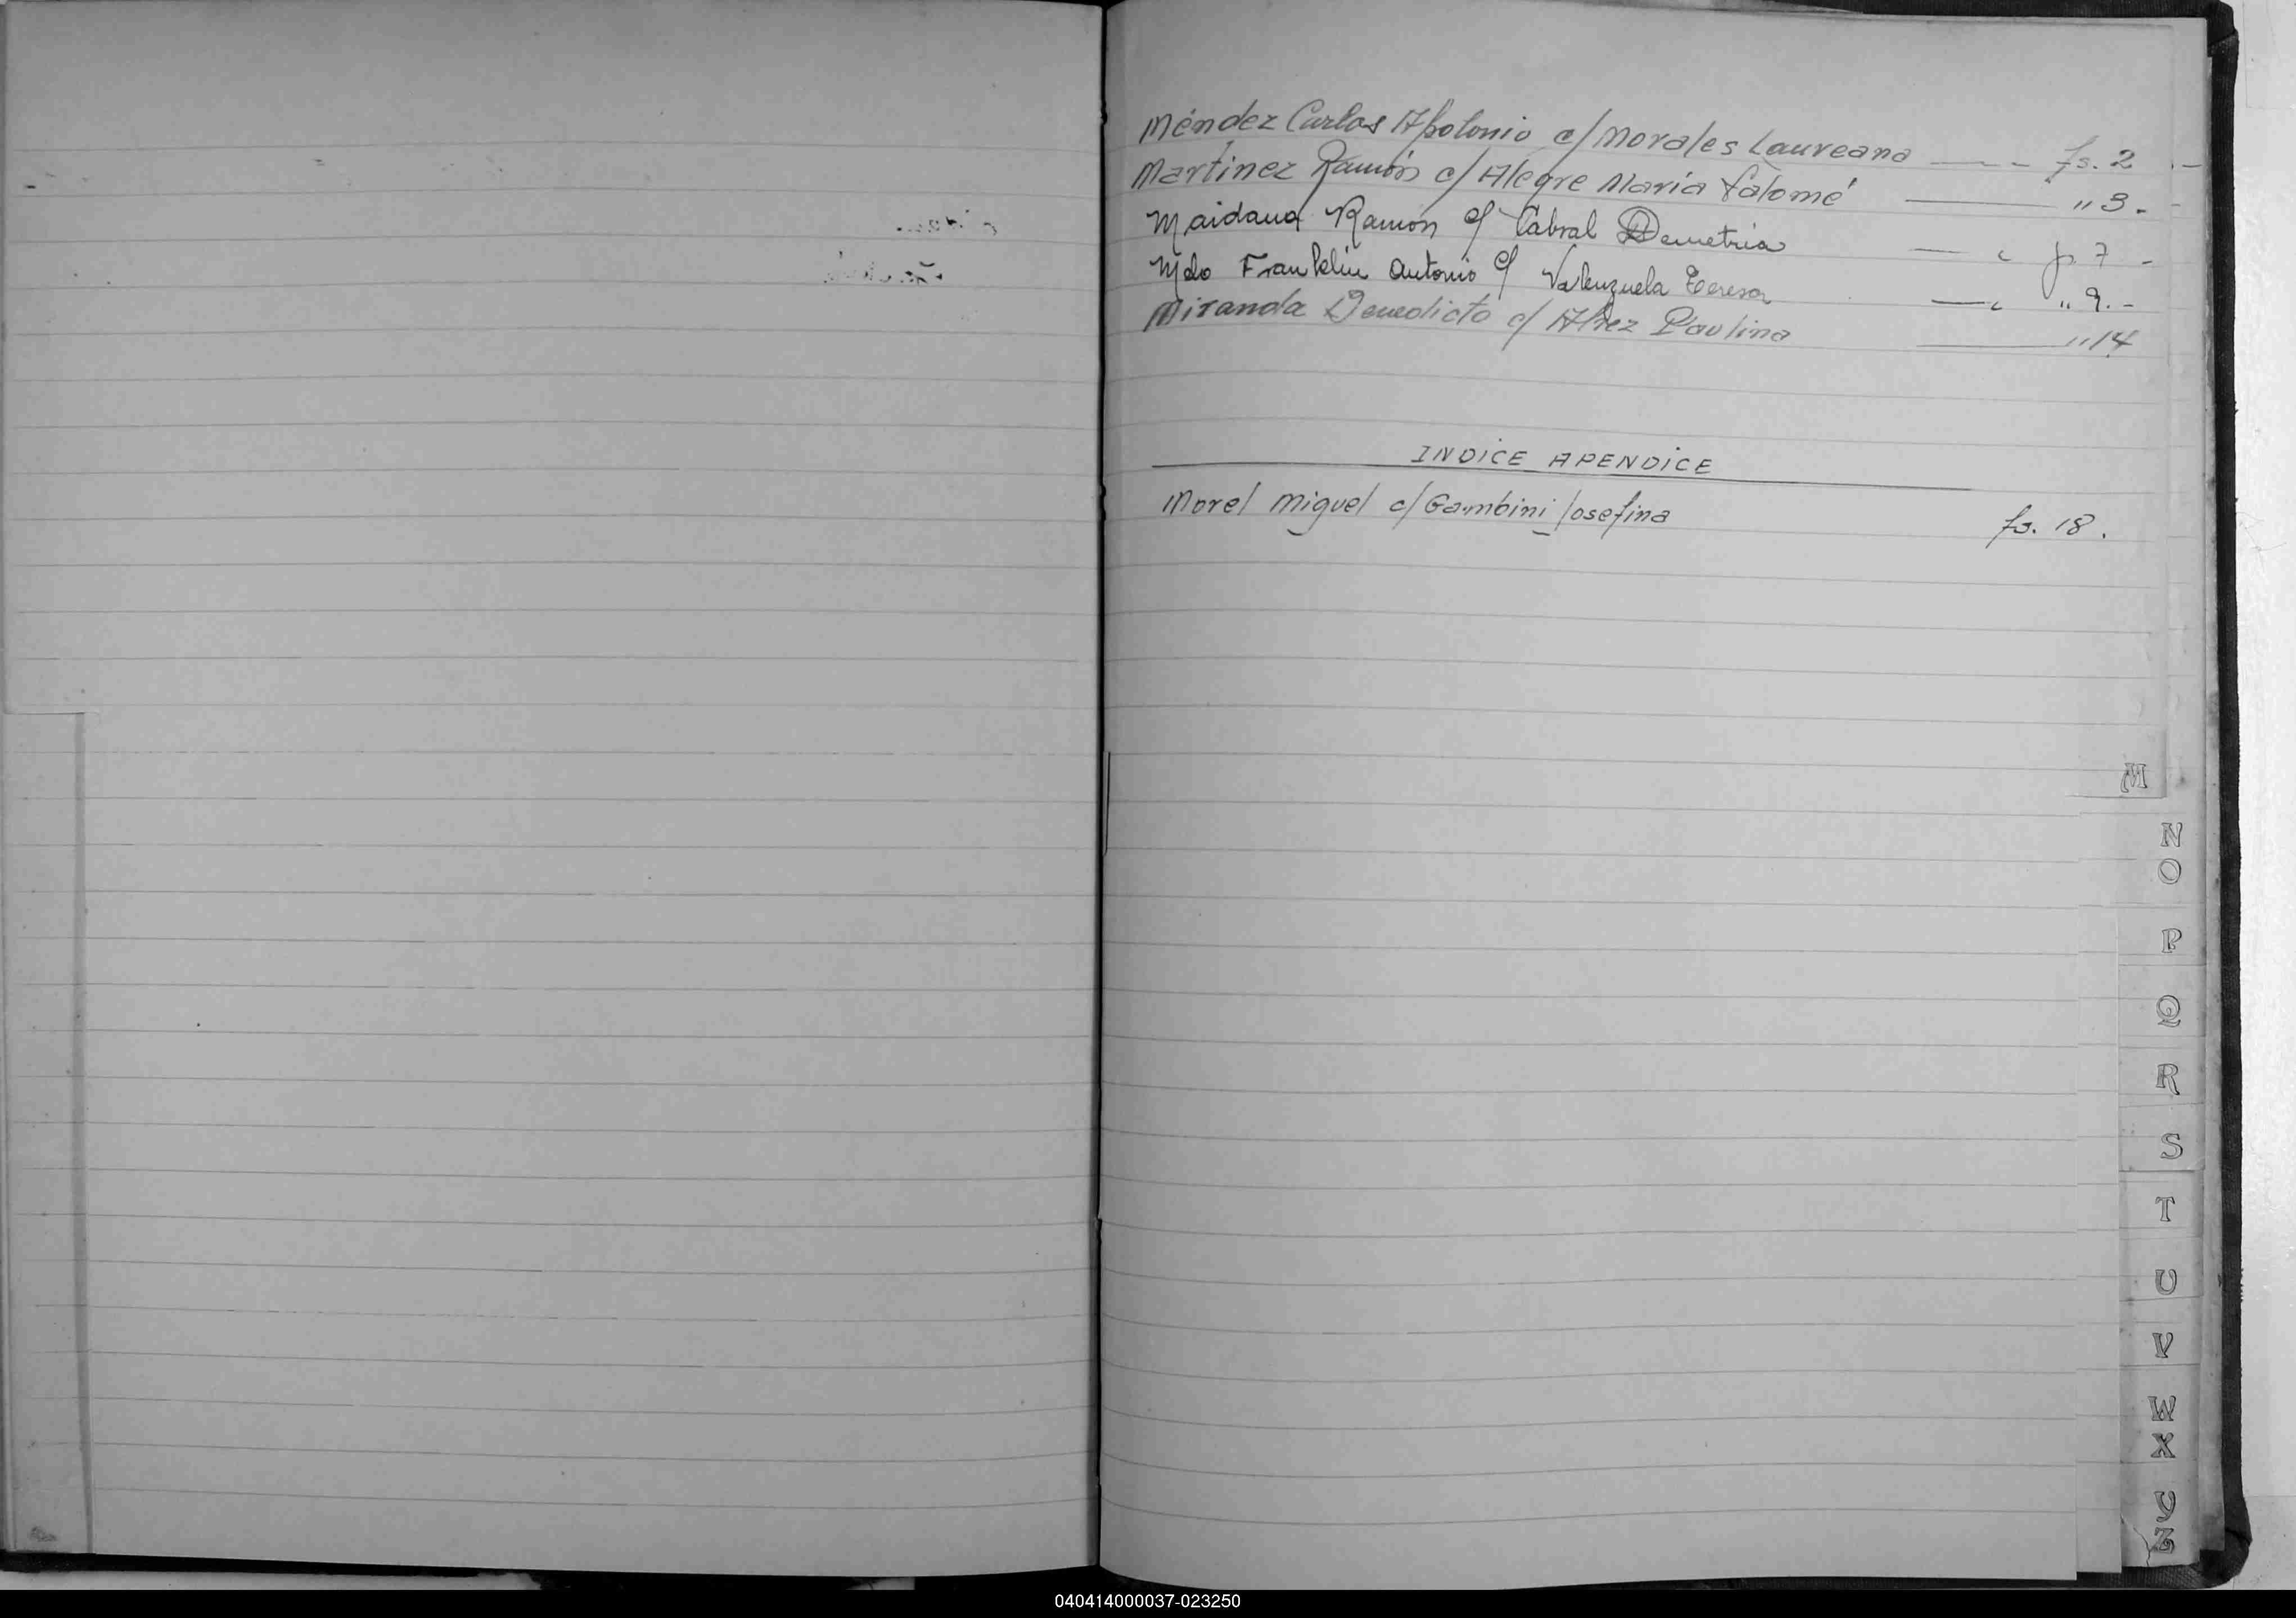 Méndez Carlos Apolonio c/ Morales Laureana —— fs. 2 . -
Martinez Ramón c/ Alegre María Salomé —— " 3 . -
Maidana Ramon c/ Cabral Demetria —— " fs. 7 -
Melo Franklin Antonio c/ Valenzuela Teresa —— " " 9 . -
Miranda Benedicto c/ Alrez Paulina —— " 14
INDICE APENDICE
Morel Miguel c/ Gambini Josefina fs. 18 .
M
N
O
P
Q
R
S
T
U
V
W
X
Y
Z
040414000037-023250